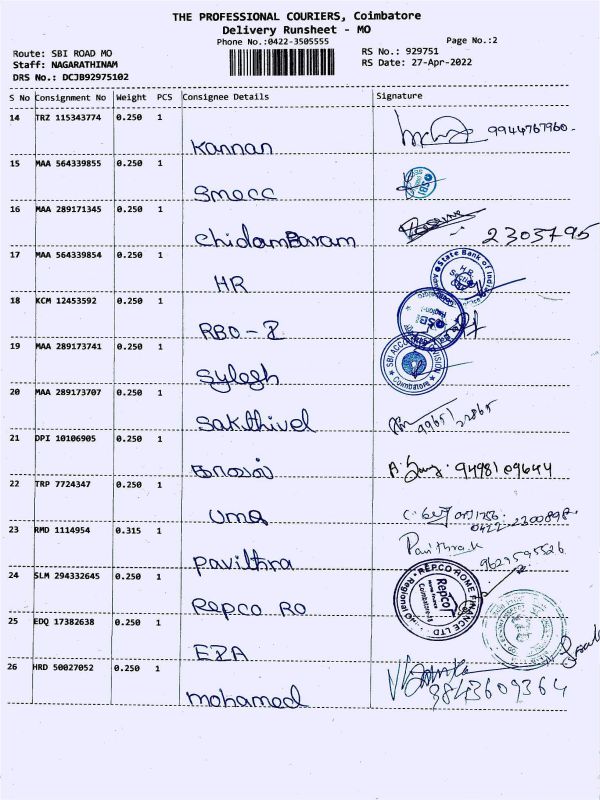 THE PROFESSIONAL COURIERS, Coimbatore
Delivery Runsheet - MO
Phone No.:0422-3505555
Page No.:2
Route: SBI ROAD MO
RS No.: 929751
Staff: NAGARATHINAM
RS Date: 27-Apr-2022
DRS No.: DCJB92975102
S No Consignment No Weight PCS Consignee Details Signature
14 TRZ 115343774 0.250 1
Kannan 9944767960
15 MAA 564339855 0.250 1
Smecc SBI
16 MAA 289171345 0.250 1
Chidambaram 2303795
17 MAA 564339854 0.250 1
HR State Bank of India
18 KCM 12453592 0.250 1
RBO - I SBI
19 MAA 289173741 0.250 1
Sylesh Coimbatore
20 MAA 289173707 0.250 1
Sakthivel
21 DPI 10106905 0.250 1
9498109644
22 TRP 7724347 0.250 1
Uma 0422-2300898
23 RMD 1114954 0.315 1
Pavithra Pavithra
24 SLM 294332645 0.250 1
Repco RO REPCO HOME FINANCE LTD
25 EDQ 17382638 0.250 1
EZA
26 HRD 50027052 0.250 1
Mohamed 9843609364